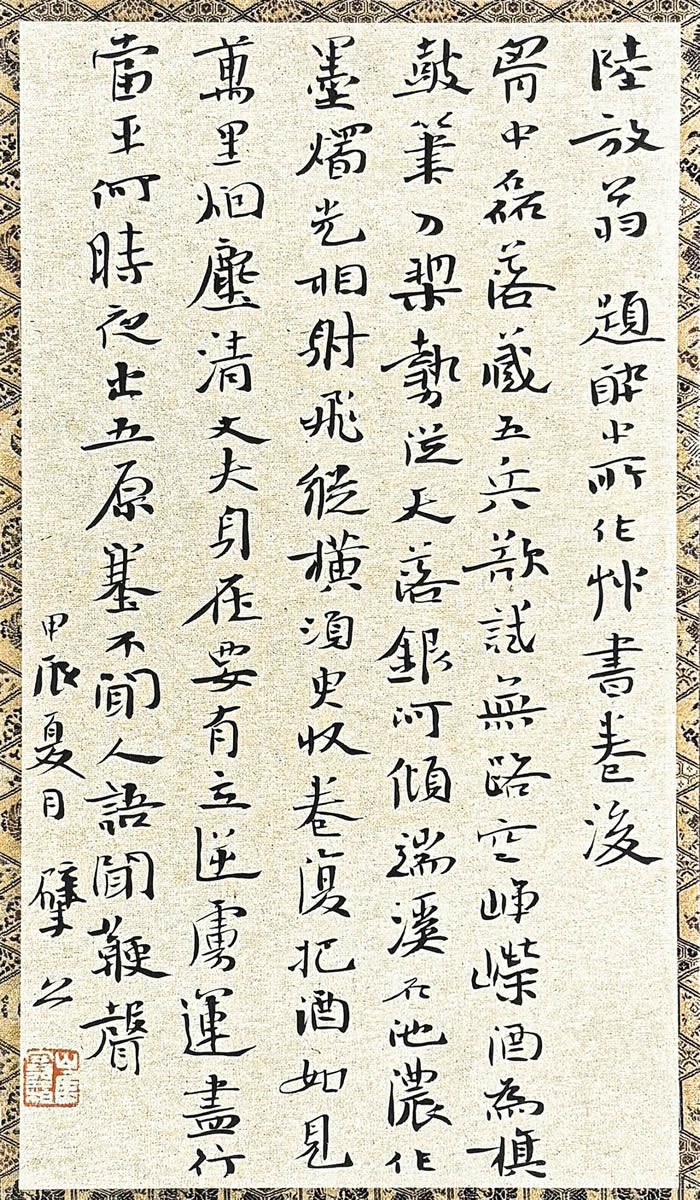 陸放翁 題醉中所作艸書卷後
胷中磊落藏五兵欲試無路空崢嶸酒為旗
鼓筆刀槊勢從天落銀河傾端溪石池濃作
墨燭光相射飛縱橫須臾收卷復把酒如見
萬里烟塵清丈夫身在要有立逆虜運盡行
當平何時夜出五原塞不聞人語聞鞭聲
甲辰夏月 公